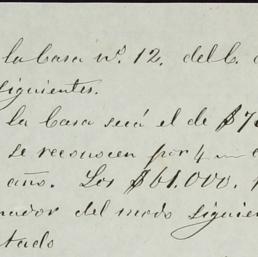 la Casa nº 12. del C.
siguientes.
la Casa será el de $7
se reconocen por 4
año. Los $61.000.
nador del modo siguien
tado